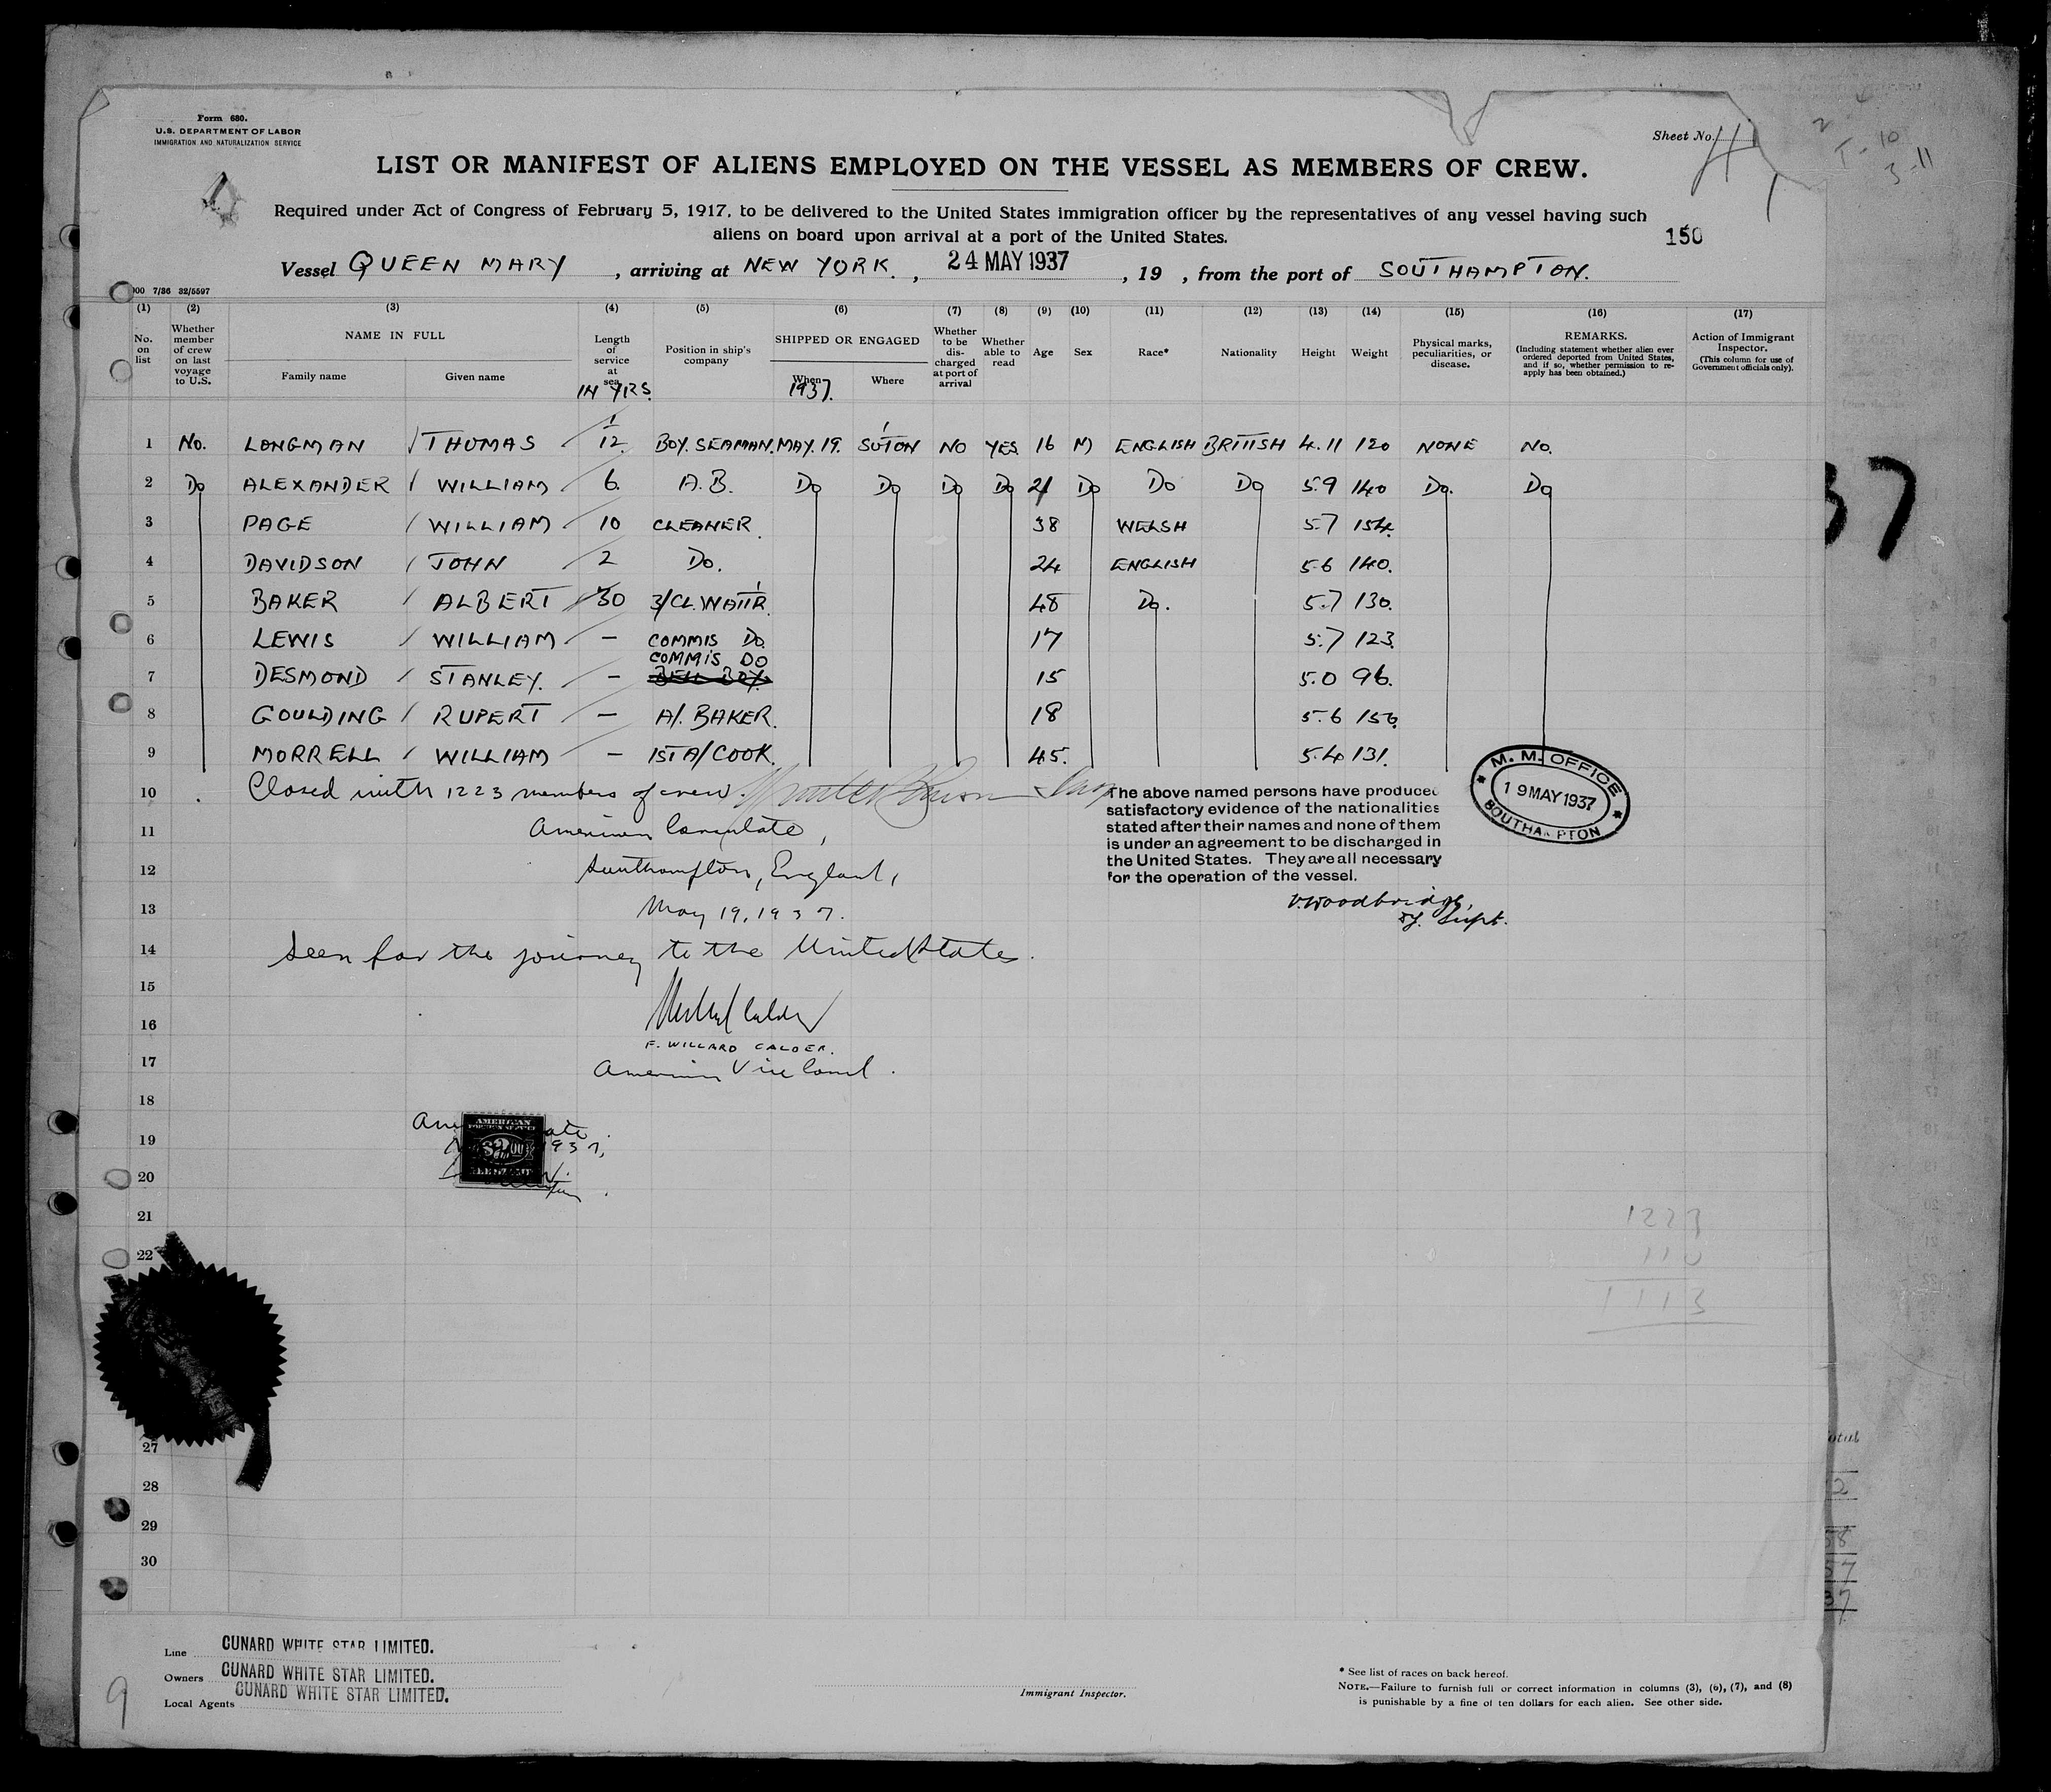 Form 680.
U.S. DEPARTMENT OF LABOR
IMMIGRATION AND NATURALIZATION SERVICE
Sheet No.
LIST OR MANIFEST OF ALIENS EMPLOYED ON THE VESSEL AS MEMBERS OF CREW.
Required under Act of Congress of February 5, 1917, to be delivered to the United States immigration officer by the representatives of any vessel having such
aliens on board upon arrival at a port of the United States.
150
Vessel QUEEN MARY, arriving at NEW YORK., 24 MAY 1937, 19 , from the port of SOUTHAMPTON.
000 7/36 32/5597
(1) (2) (3) (4) (5) (6) (7) (8) (9) (10) (11) (12) (13) (14) (15) (16) (17)
No. on list
Whether member of crew on last voyage to U.S.
NAME IN FULL
Family name Given name
Length of service at sea
IN YRS.
Position in ship's company
SHIPPED OR ENGAGED
When Where
1937.
Whether to be discharged at port of arrival
Whether able to read
Age Sex Race* Nationality Height Weight
Physical marks, peculiarities, or disease.
REMARKS.
(Including statement whether alien ever ordered deported from United States, and if so, whether permission to reapply has been obtained.)
Action of Immigrant Inspector.
(This column for use of Government officials only).
1 No. LONGMAN THOMAS 1/12. BOY. SEAMAN. MAY. 19. SO'TON NO YES 16 M ENGLISH BRITISH 4.11 120 NONE NO.
2 Do ALEXANDER WILLIAM 6. A.B. Do Do Do Do 21 Do Do Do 5.9 140 Do. Do
3 PAGE WILLIAM 10 CLEANER. 38 WELSH 5.7 154.
4 DAVIDSON JOHN 2 Do. 24 ENGLISH 5.6 140.
5 BAKER ALBERT 30 3/CL. WAIT'R. 48 Do. 5.7 130.
6 LEWIS WILLIAM – COMMIS Do. 17 5.7 123.
COMMIS DO
7 DESMOND STANLEY. – BELL BOY. 15 5.0 96.
8 GOULDING RUPERT – A/. BAKER. 18 5.6 156.
9 MORRELL WILLIAM – 1ST A/COOK. 45. 5.4 131.
10 Closed with 1223 members of crew.
11 American Consulate,
12 Southampton, England,
13 May 19, 1937.
The above named persons have produced
satisfactory evidence of the nationalities
stated after their names and none of them
is under an agreement to be discharged in
the United States. They are all necessary
for the operation of the vessel.
V. Woodbridge,
Supt.
M. M. OFFICE
19 MAY 1937
SOUTHAMPTON
14 Seen for the journey to the United States.
15
16
F. WILLARD CALDER.
17 American Vice Consul.
18
19
AMERICAN
FOREIGN SERVICE
$2.00
1937,
20
21
1223
22
110
1113
27
28
29
30
Line CUNARD WHITE STAR LIMITED.
Owners CUNARD WHITE STAR LIMITED.
Local Agents CUNARD WHITE STAR LIMITED.
9
Immigrant Inspector.
* See list of races on back hereof.
NOTE.—Failure to furnish full or correct information in columns (3), (6), (7), and (8)
is punishable by a fine of ten dollars for each alien. See other side.